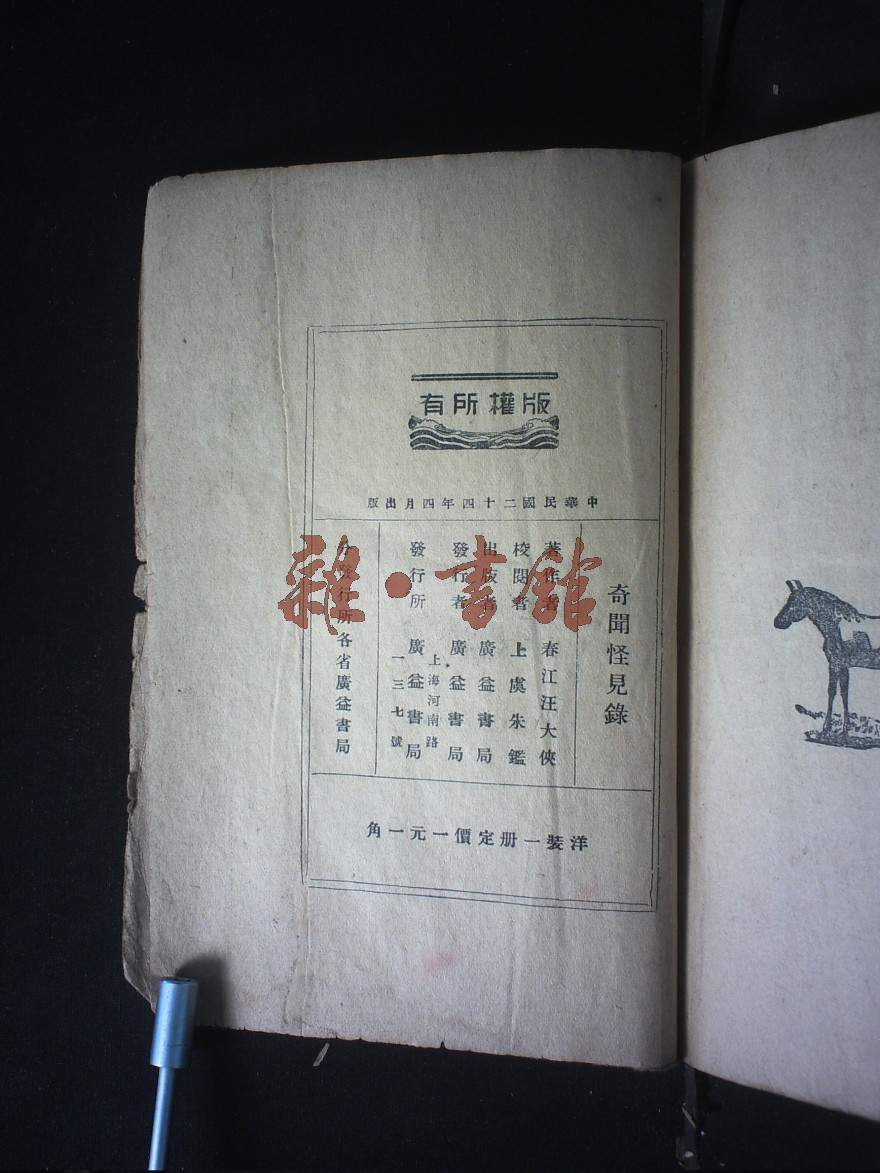 版權所有
中華民國二十四年四月出版
奇聞怪見錄
著作者 春江汪大俠
校閱者 上虞朱鑑
出版者 廣益書局
發行者 廣益書局
上海河南路
發行所 廣益書局
一三七號
分發行所各省廣益書局
洋裝一册定價一元一角
雜·書館